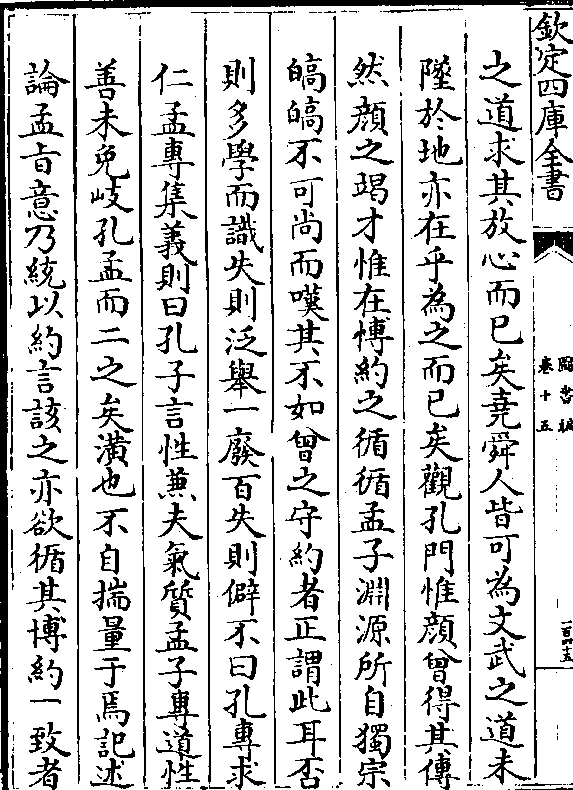 欽定四庫全書
圖書編
卷十五
之道求其放心而已矣堯舜人皆可為文武之道未
墜於地亦在乎為之而已矣觀孔門惟顔曾得其傳
然顔之竭才惟在博約之循循孟子淵源所自獨宗
皜皜不可尚而嘆其不如曾之守約者正謂此耳否
則多學而識失則泛舉一廢百失則僻不曰孔專求
仁孟專集義則曰孔子言性兼夫氣質孟子專道性
善未免岐孔孟而二之矣潢也不自揣量于焉記述
論孟㫖意乃統以約言該之亦欲循其博約一致者